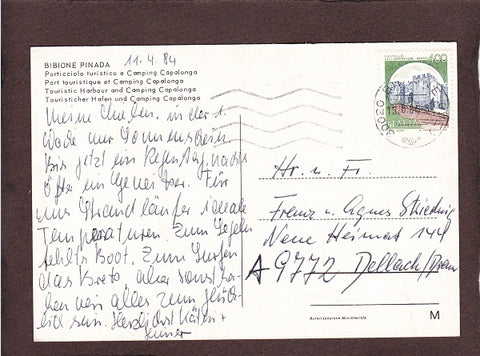 11.4.84
BIBIONE PINADA
Porticciolo turistico e Camping Capalonga
Port touristique et Camping Capalonga
Touristic Harbour and Camping Capalonga
Touristischer Hafen und Camping Capalonga
Meine in der 1.
Woche nur Sonnenschein.
Bis jetzt ein Regentag, nachts
öfter ein Gewitter. Für
uns Strandläufer ideale
Temperaturen. Zum Segeln
fehlt's Boot. Zum Surfen
das Brett aber sonst ha-
ben wir alles zum glück-
lich sein. Herzlichst Käthe +
400
ITALIA
Hr. u. Fr.
Franz u. Agnes
Neue Heimat 144
A 9772 Dellach/Drau
Autorizzazione Ministeriale
M